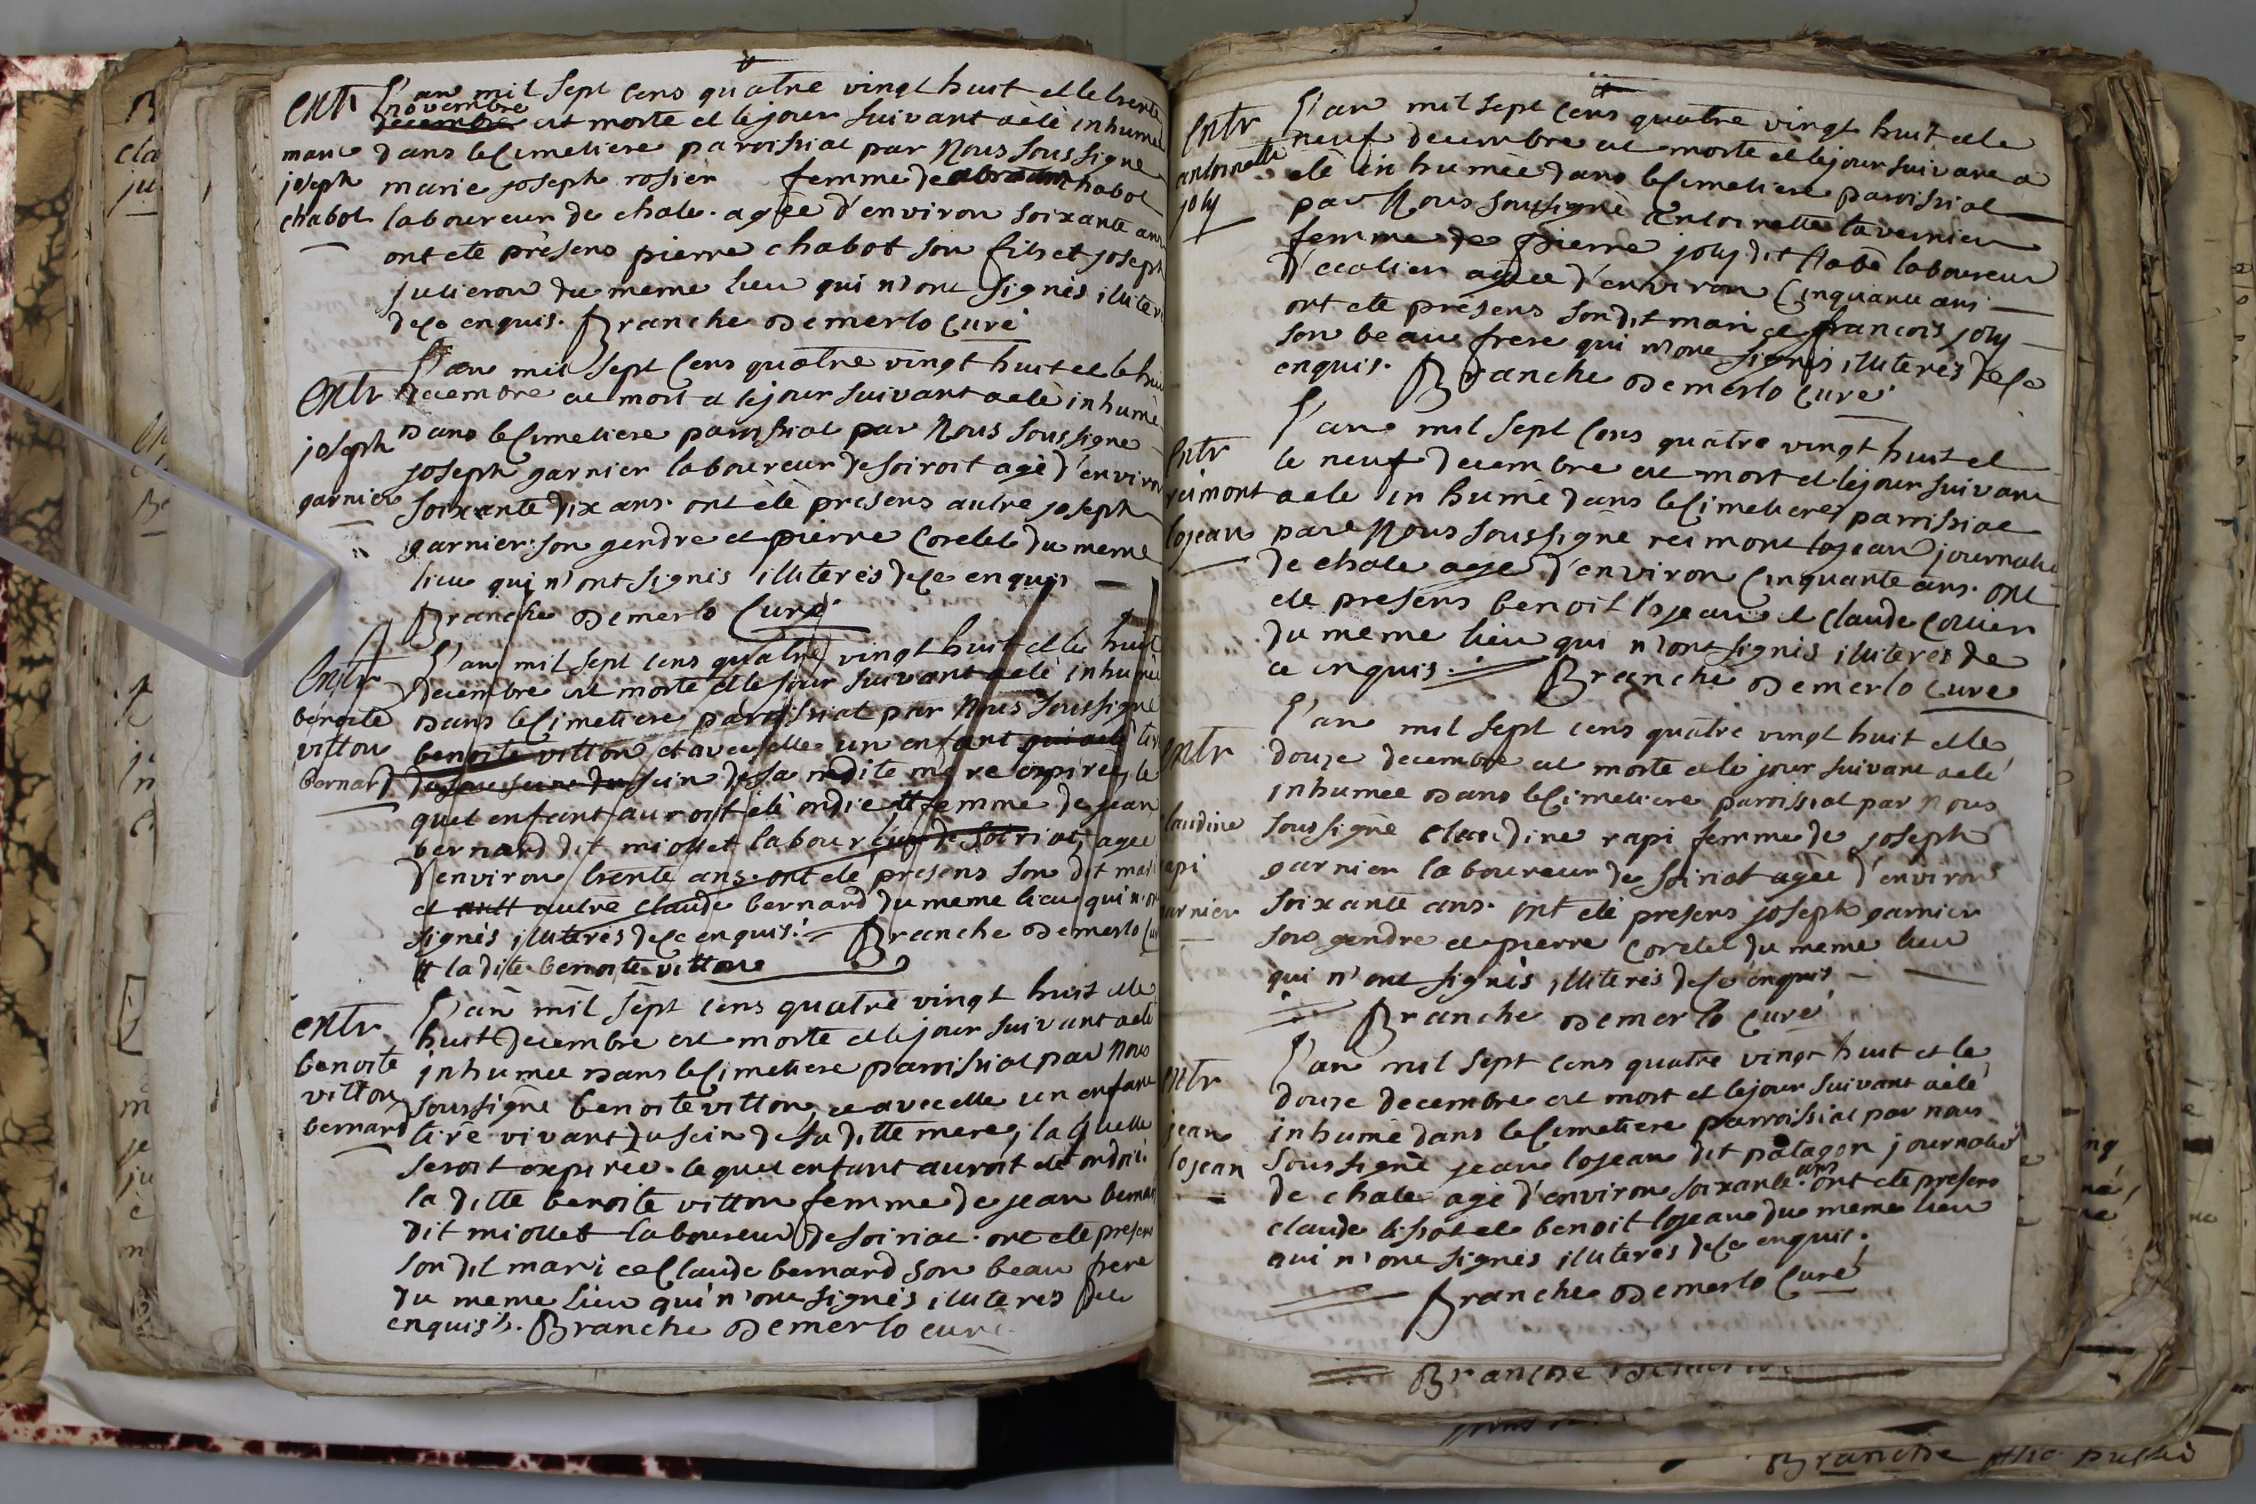 entr
marie
joseph
chabot
L'an mil sept cens quatre vingt huit et le trente
novembre
decembre est morte et le jour suivant a èté inhumeé
dans le Cimetiere paroissial par Nous soussigne
marie joseph rosier femme de abraam chabot
laboureur de chale. agée d'environ soixante ans
ont eté prèsens pierre chabot son fils et joseph
julieron du meme lieu qui n'ont signès illiterés
de ce enquis. Branche Demerlo Curé
entr
joseph
garnier
L'an mil sept Cens quatre vingt huit et le huit
decembre est mort et le jour suivant a eté inhumè
Dans le Cimetiere paroissial par Nous soussigne
joseph garnier laboureur de soiroit agé d'environ
soixante dix ans. ont èté presens autre joseph
garnier son gendre et pierre Coretel du meme
lieu qui n'ont signés illiterés de ce enquis
Branche Demerlo Curé
entr
benoite
vitton
bernard
L'an mil sept cens quatre vingt huit et le huit
decembre est morte et le jour suivant a eté inhumée
Dans le Cimetiere paroissial par Nous soussigné
benoite vitton et avec elle un enfant qui a eté tiré
du sein de sa ditte mere expirée, le
quel enfant auroit été ondié # femme de jean
bernard dit miollet laboureur de soiriat, agee
d'environ trente ans. ont eté presens son dit mari
et autre claude bernard du meme lieu qui n'ont
signés illiterés de ce enquis. Branche Demerlo Curé
# la dite benoite vitton
entr
benoite
vitton
bernard
L'an mil sept cens quatre vingt huit et le
huit decembre est morte et le jour suivant a eté
inhumée Dans le Cimetiere paroissial par Nous
soussigné benoite vitton, et avec elle un enfant
tiré vivant du sein de sa ditte mere, la quelle
seroit expirée. le quel enfant auroit eté ondoié
la ditte benoite vitton femme de jean bernard
dit miollet laboureur de soiriat. ont eté presens
son dit mari et Claude bernard son beau frere
du meme lieu qui n'ont signés illiterés de ce
enquis. Branche Demerlo curé
entr
antoinette
joly
L'an mil sept Cens quatre vingt huit et le
neuf decembre est morte et le jour suivant a
eté inhumée dans le Cimetiere paroissial
par Nous soussigné antoinette tavernier
femme de pierre joly dit l'abé laboureur
agée d'environ Cinquante ans
ont eté présens son dit mari et francois joly
son beau frere qui n'ont signés illiterés de ce
enquis. Branche Demerlo Curé
entr
reimont
lojean
L'an mil sept Cens quatre vingt huit et
le neuf decembre est mort et le jour suivant
a eté inhumé dans le Cimetiere paroissial
par Nous soussigné reimont lojean journalier
de chale agé d'environ Cinquante ans. ont
eté presens benoit lojean et Claude Collier
du meme lieu qui n'ont signés illiterés de
ce enquis. Branche Demerlo Curé
entr
claudine
rapi
garnier
L'an mil sept cens quatre vingt huit et le
douze decembre est morte et le jour suivant a eté
inhumée Dans le Cimetiere paroissial par Nous
soussigné claudine rapi femme de joseph
garnier laboureur de soiriat agée d'environ
soixante ans. ont eté presens joseph garnier
son gendre et pierre Coretel du meme lieu
qui n'ont signés illiterés de ce enquis
Branche Demerlo Curé
entr
jean
lojean
L'an mil sept cens quatre vingt huit et le
douze decembre est mort et le jour suivant a eté
inhumé dans le Cimetiere paroissial par nous
soussigné jean lojean dit patagon journalier
de chale agé d'environ soixante ans. ont eté presens
claude et benoit lojean du meme lieu
qui n'ont signés illiterés de ce enquis.
Branche Demerlo Curé
Branche
Branche